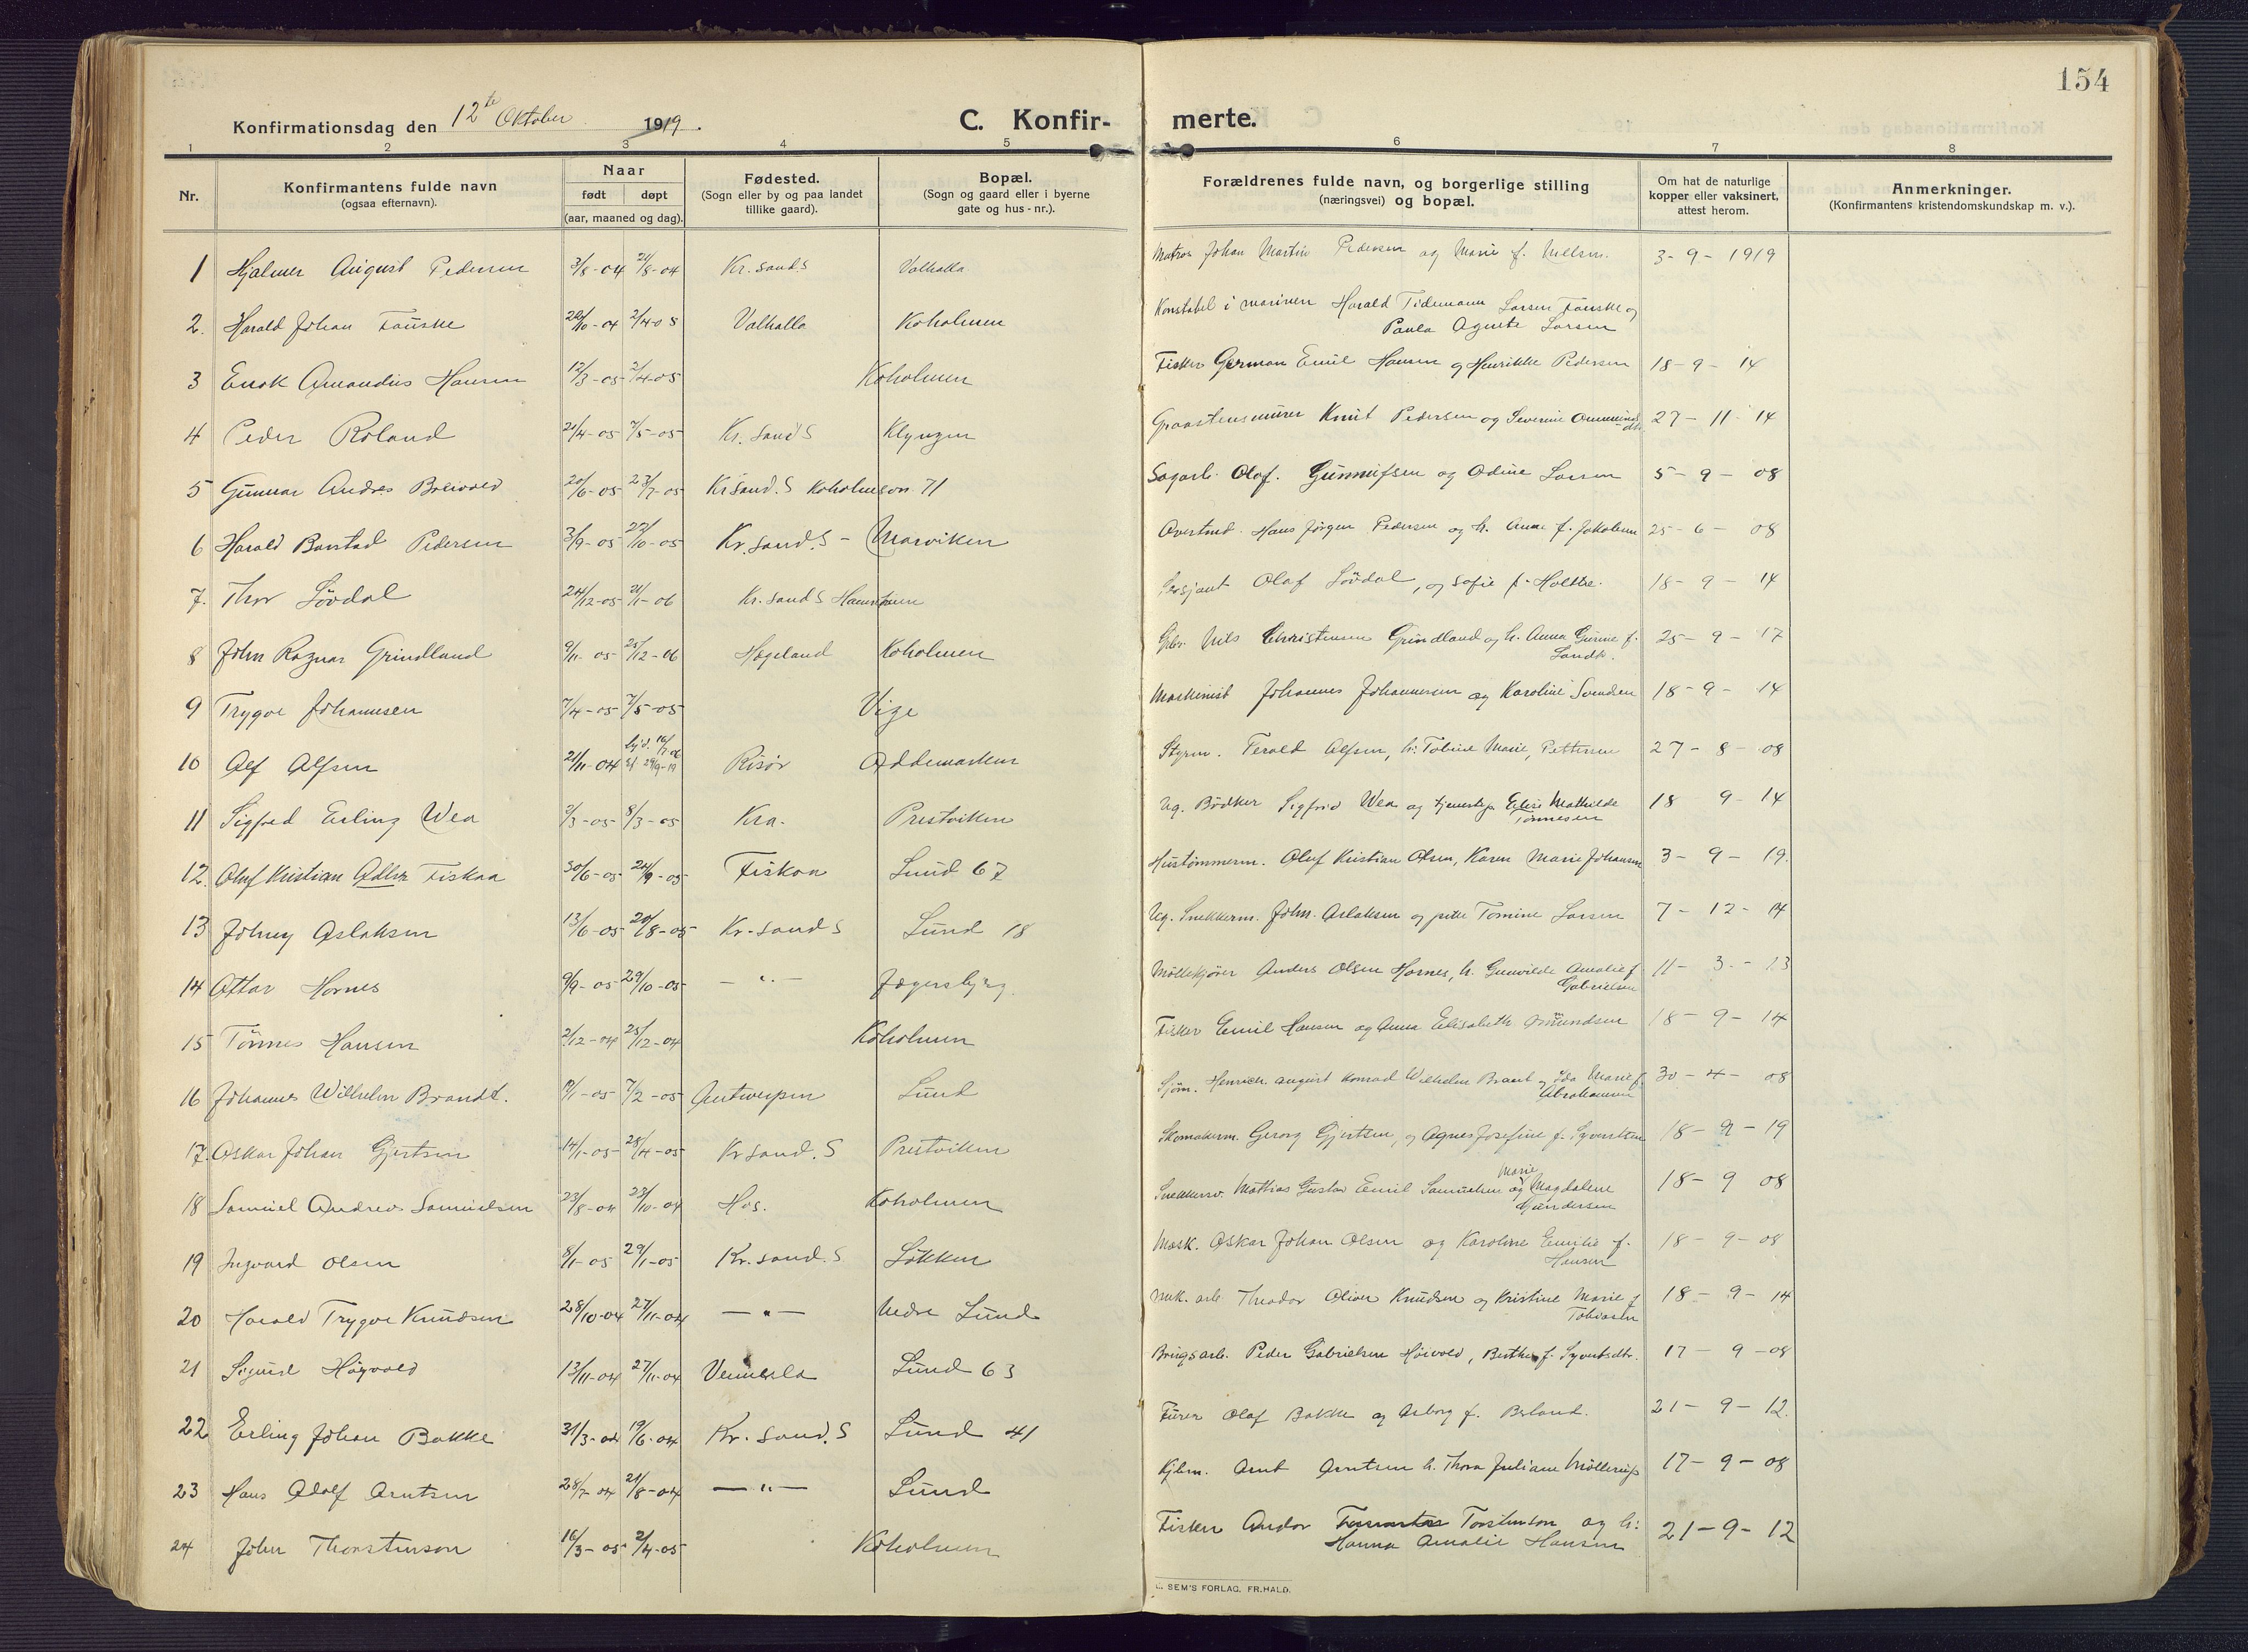 154
Konfirmationsdag den 12te Oktober 1919.
C. Konfirmerte.
1 2 3 4 5 6 7 8
Nr.
Konfirmantens fulde navn
(ogsaa efternavn).
Naar
født døpt
(aar, maaned og dag).
Fødested.
(Sogn eller by og paa landet
tillike gaard).
Bopæl.
(Sogn og gaard eller i byerne
gate og hus-nr.).
Forældrenes fulde navn, og borgerlige stilling
(næringsvei) og bopæl.
Om hat de naturlige
kopper eller vaksinert,
attest herom.
Anmerkninger.
(Konfirmantens kristendomskundskap m. v.).
1 Hjalmer August Pedersen 3/8-04 21/8-04 Kr.sand S Valhalla Matros Johan Martin Pedersen og Marie f. Nellsen. 3-9-1919
2. Harald Johan Fauske 22/10-04 2/4-05 Valhalla Koholmen Konstabel i marinen Harald Tidemann Larsen Fauske og
Paula Agnete Larsen
3 Enok Amandus Hansen 12/3-05 2/4-05 Koholmen Fisker German Emil Hansen og Henrikke Pedersen 18-9-14
4 Peder Roland 21/4-05 7/5-05 Kr.sand S Klyngen Graastensmurer Knut Pedersen og Severine 27-11-14
5 Gunnar Andres Breivold 20/6-05 23/7-05 Kr.sand.S Koholmen 71 Sagarb. Olaf. Gunnufsen og Odine Larsen 5-9-08
6 Harald Barstad Pedersen 3/9-05 22/10-05 Kr.sand.S - Marviken Overtnd. Hans Jørgen Pedersen og h. Anne f. Jakobsen 25-6-08
7. Thor Lövdal 24/12-05 21/1-06 Kr.sand S Sersjant Olaf Lövdal, og Sofie f. Holthe. 18-9-14
8 John Ragnar Grindland 9/11-05 25/12-06 Hægeland Koholmen Gbr. Nils Christensen Grindland og h. Anna Gurine f. 25-9-17
9 Trygve Johannesen 7/4-05 7/5-05 Vige Maskinist Johannes Johannesen og Karoline Svendsen 18-9-14
10 Alf Alfsen 21/11-04 hjd. 16/7-06 Risør Oddemarken Styrm. Terald Alfsen, h. Tobine Marie, Pettersen 27-8-08
11 Sigfred Erling Wea 2/3-05 8/3-05 Kra. Prestviken Ug. Bødker Sigfrid Wea og tjenestep. Elise Mathilde 18 9-14
Tønnesen
12. Oluf Kristian Adler Fiskaa 30/6-05 24/9-05 Fiskaa Lund 67 Hustømmerm. Oluf Kristian Olsen, Karen Marie Johansen 3-9-19.
13 Johny Aslaksen 13/6-05 20/8-05 Kr-sand S Lund 18 Ug. Snekkerm. John Aslaksen og pike Tomine Larsen 7-12-14
14 Ottar Hornes 9/9-05 29/10-05 — " — Jægersbjerg. Møllekjører Anders Olsen Hornes, h. Gunvilde Amalie f. 11-3-13
Gabrielsen
15 Tönnes Hansen 2/12-04 25/12-04 Koholmen Fisker Emil Hansen og Anna Elisabeth Omundsen 18-9-14
16 Johannes Wilhelm Brandt. /1-05 7/2-05 Antwerpen Lund Sjøm. Henrich august Konrad Wilhelm Brant og Ida Marie f. 30-4-08
Abrahamsen
17. Oskar Johan Gjertsen 14/1-05 28/4-05 Kr sand.S Prestviken Skomakerm. Georg Gjertsen, og Agnes Josefine f. Syvertsen 18-9-19
18 Samuel Andreas Samuelsen 23/8-04 23/10-04 Hos. Koholmen Snekkersv. Mathias Gustav Emil Samuelsen og Marie Magdalene 18-9 08
Gundersen
19 Ingvard Olsen 8/1-05 29/1-05 Kr.sand.S Løkken Mask. Oskar Johan Olsen og Karoline Emilie f. 18-9-08
Hansen
20 Harald Trygve Knudsen 28/10-04 27/11-04 — " — Nedre Lund mek. arb. Theodor Oliver Knudsen og Kristine Marie f 18-9-14
Tobiasen
21 Sigurd Høyvold 13/11-04 27/11-04 Vennesla Lund 63 Brugsarb. Peder Gabrielsen Høivold, Berthe f. Syvertsdtr. 17-9-08
22 Erling Johan Bakke 31/3-04 19/6-04 Kr.sand.S Lund 41 Furer Olaf Bakke og Asborg f. Bsland. 21-9-12.
23 Hans Adolf Arntsen 28/7-04 21/8-04 — " — Lund Kjbm. Arnt Arntsen h. Thora Juliane Møllerup 17-9-08
24 John Thorstenson 16/3-05 2/4-05 Koholmen Fisker Andor Torstenson og h: 21-9-12
Hanna Amalie Hansen
SEM'S FORLAG. FR.HALD.